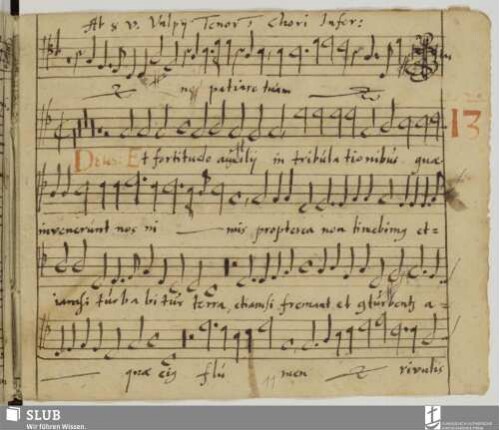 Ab 8 v. Valpy Tenor Chori Infer:
petiare tuam
13
Deus: Et fortitudo in tribulationibus quæ
invenerunt nos ni mis propterea non timebimq et=
iamsi turbabitur terra, etiamsi fremant et a=
quæ eiq flu men rivulis
SLUB
Wir führen Wissen.